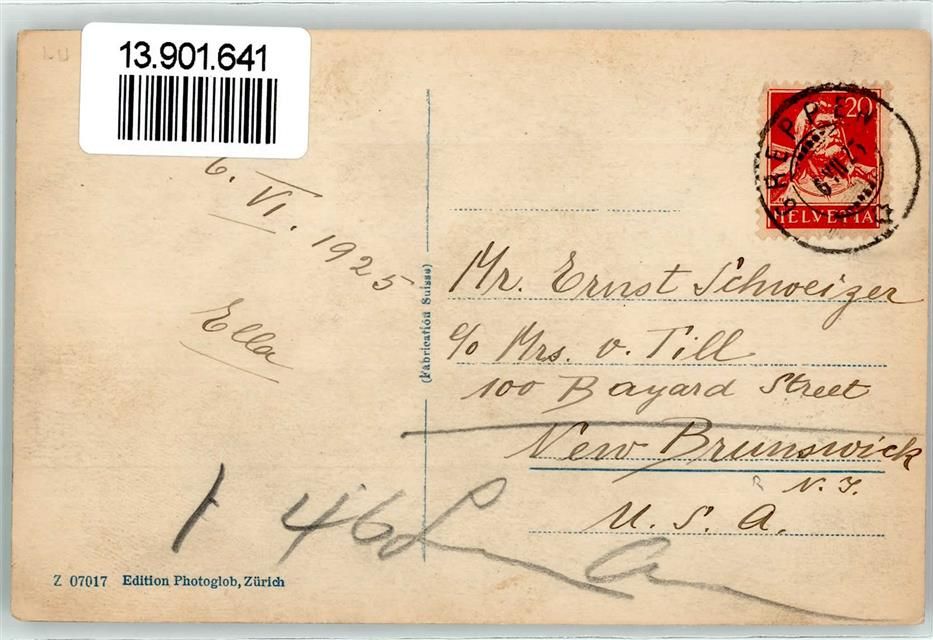 13.901.641
GREPPEN
6. VII. 25
20
HELVETIA
6. VI. 1925
Ella
(Fabrication Suisse)
Mr. Ernst Schweizer
c/o Mrs. v. Till
100 Bayard Street
New Brunswick
N. J.
U. S. A.
Z 07017 Edition Photoglob, Zürich